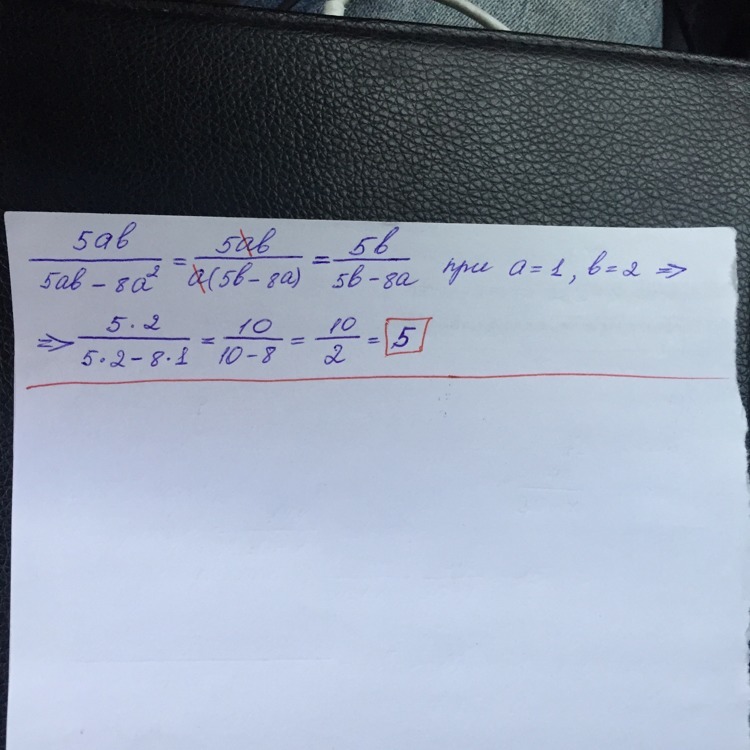 5ab/(5ab - 8a²) = 5ab/(a(5b - 8a)) = 5b/(5b - 8a) при a = 1, b = 2 ⇒
⇒ (5 · 2)/(5 · 2 - 8 · 1) = 10/(10 - 8) = 10/2 = 5